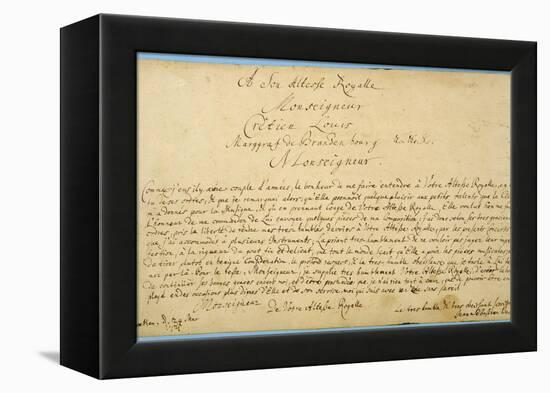 A Son Altesse Royalle
Monseigneur
Crêtien Louis
Marggraf de Brandenbourg &c. &c. &c.
Monseigneur.
Comme j'eus il y a une couple d'années, le bonheur de me faire entendre à Votre Altesse Royalle, en
tu de ses ordres, & que je remarquai alors, qu'Elle prennoit quelque plaisir aux petits talents que le Ciel
m'a donnés pour la Musique, & qu'en prennant Congé de Votre Altesse Royalle, Elle voulut bien me
l'honneur de me commander de Lui envoyer quelques pieces de ma Composition: j'ai donc selon ses tres gracieux
ordres, pris la liberté de rendre mes tres-humbles devoirs à Votre Altesse Royalle, par les presents Concerts
que j'ai accommodés à plusieurs Instruments; La priant tres-humblement de ne vouloir pas juger leur imper
fection, à la rigueur du gout fin et delicat, que tout le monde sçait qu'Elle a pour les pièces musicales
de tirer plutot en benigne Consideration, le profond respect, & la tres-humble obeissance que je
Pour le reste, Monseigneur, je supplie tres humblement Votre Altesse Royalle, d'avoir la bonté
de continüer ses bonnes graces envers moi, et d'être persuadée que je n'ai rien tant à cœur, que de pouvoir être
ployé en des occasions plus dignes d'Elle et de son service, moi qui suis avec un zele sans pareil
Monseigneur
De Votre Altesse Royalle
Le tres humble & tres obeissant serviteur
d. 24 Mar
1721
Jean Sebastien